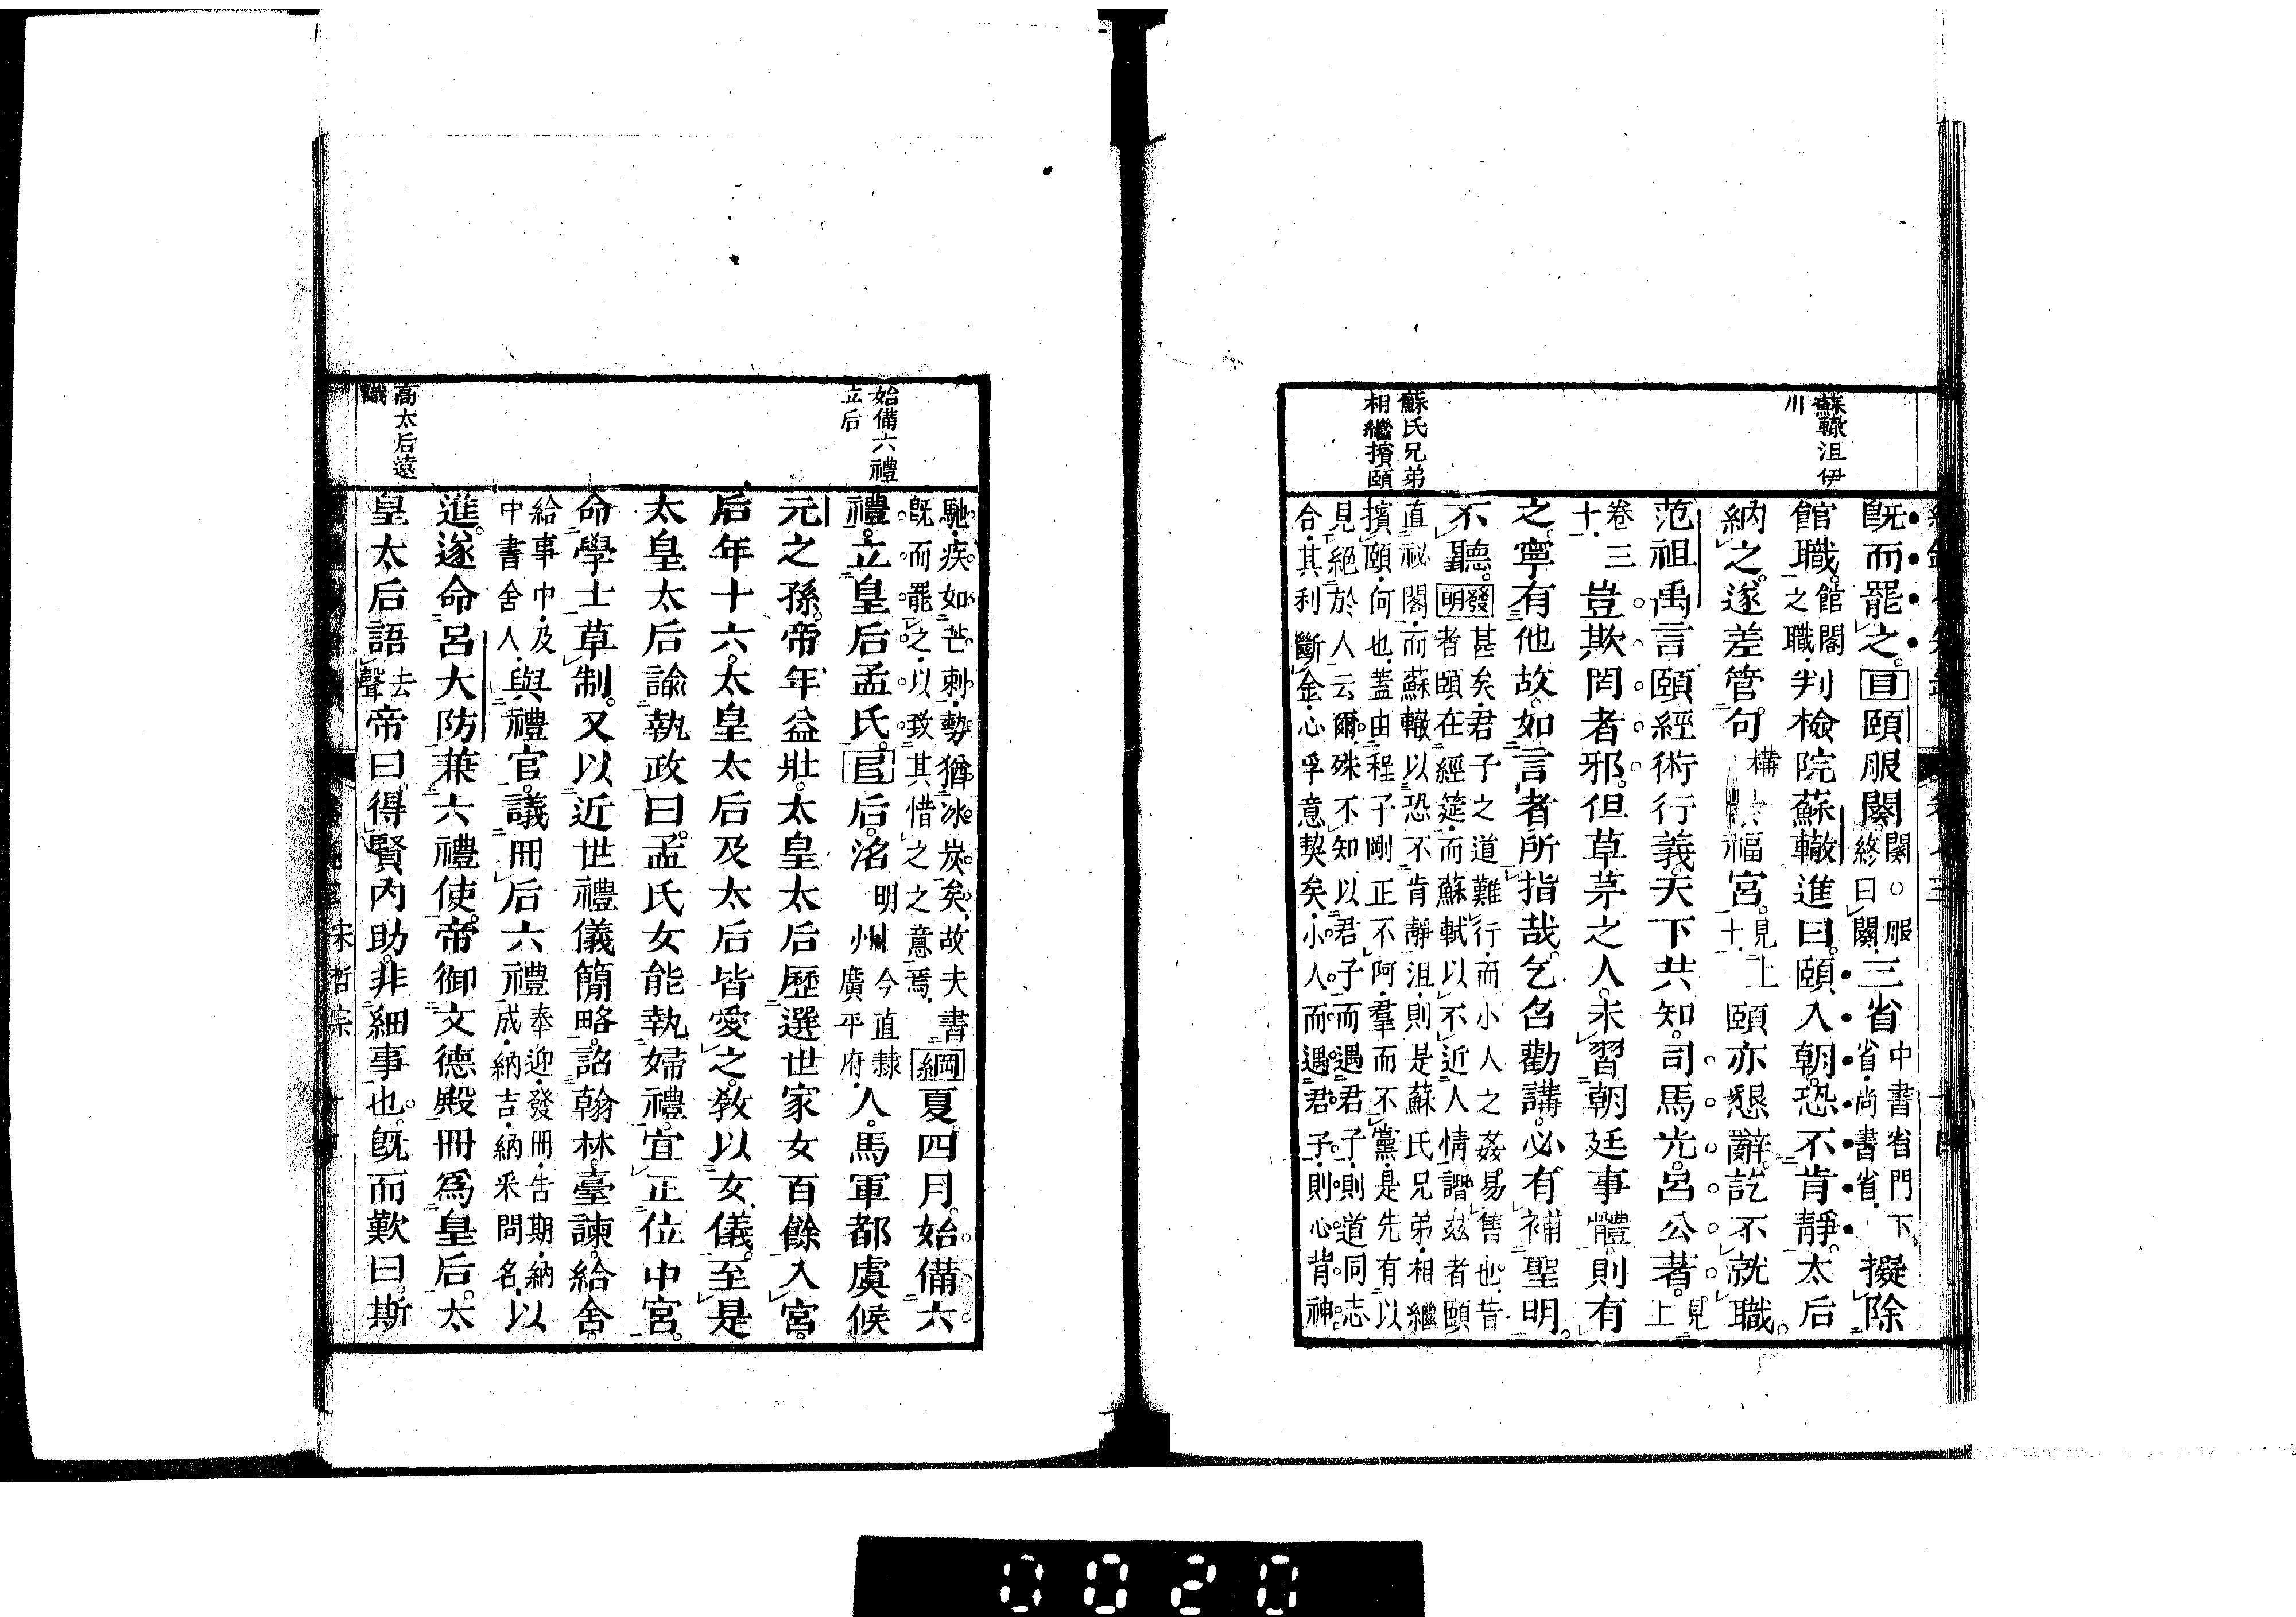 蘇轍沮伊
川
蘇氏兄弟
相繼擯頤
既而罷之。目頤服闋。闋。服終曰闋。三省中書省門下省。尚書省。擬除
館職。館閣之職。判檢院蘇轍進曰。頤入朝。恐不肯靜。太后
納之。遂差管句福宮。見上十一頤亦懇辭。訖不就職。
范祖禹言頤經術行義。天下共知。司馬光。呂公著。見上
卷三十。豈欺罔者邪。但草茅之人。未習朝廷事體。則有
之。寧有他故。如言者所指哉。乞召勸講。必有補聖明。
不聽。發明甚矣。君子之道難行。而小人之姦易售也。昔者頤在經筵。而蘇軾以不近人情譖茲者頤
直祕閣。而蘇轍以恐不肯靜沮。則是蘇氏兄弟。相繼擯頤。何也。蓋由程子剛正不阿。羣而不黨。是先有以
見絕於人云爾。殊不知以君子而遇君子。則道同志合。其利斷金。心孚意契矣。小人而遇君子。則心背神
始備六禮
立后
高太后遠
識
馳。疾如芒刺。勢猶冰炭矣。故夫書既而罷之。以致其惜之之意焉。綱夏四月。始備六
禮。立皇后孟氏。目后。洺州今直隸廣平府。人。馬軍都虞候
元之孫。帝年益壯。太皇太后歷選世家女百餘入宮。
后年十六。太皇太后及太后皆愛之。敎以女儀。至是
太皇太后諭執政曰。孟氏女能執婦禮。宜正位中宮。
命學士草制。又以近世禮儀簡略。詔翰林。臺諫。給舍。
給事中。及中書舍人。與禮官。議冊后六禮。奉迎。發冊。告期。納成。納吉。納采問名。以
進。遂命呂大防兼六禮使。帝御文德殿冊爲皇后。太
皇太后語去聲帝曰。得賢內助。非細事也。既而歎曰。斯
宋哲宗
0020